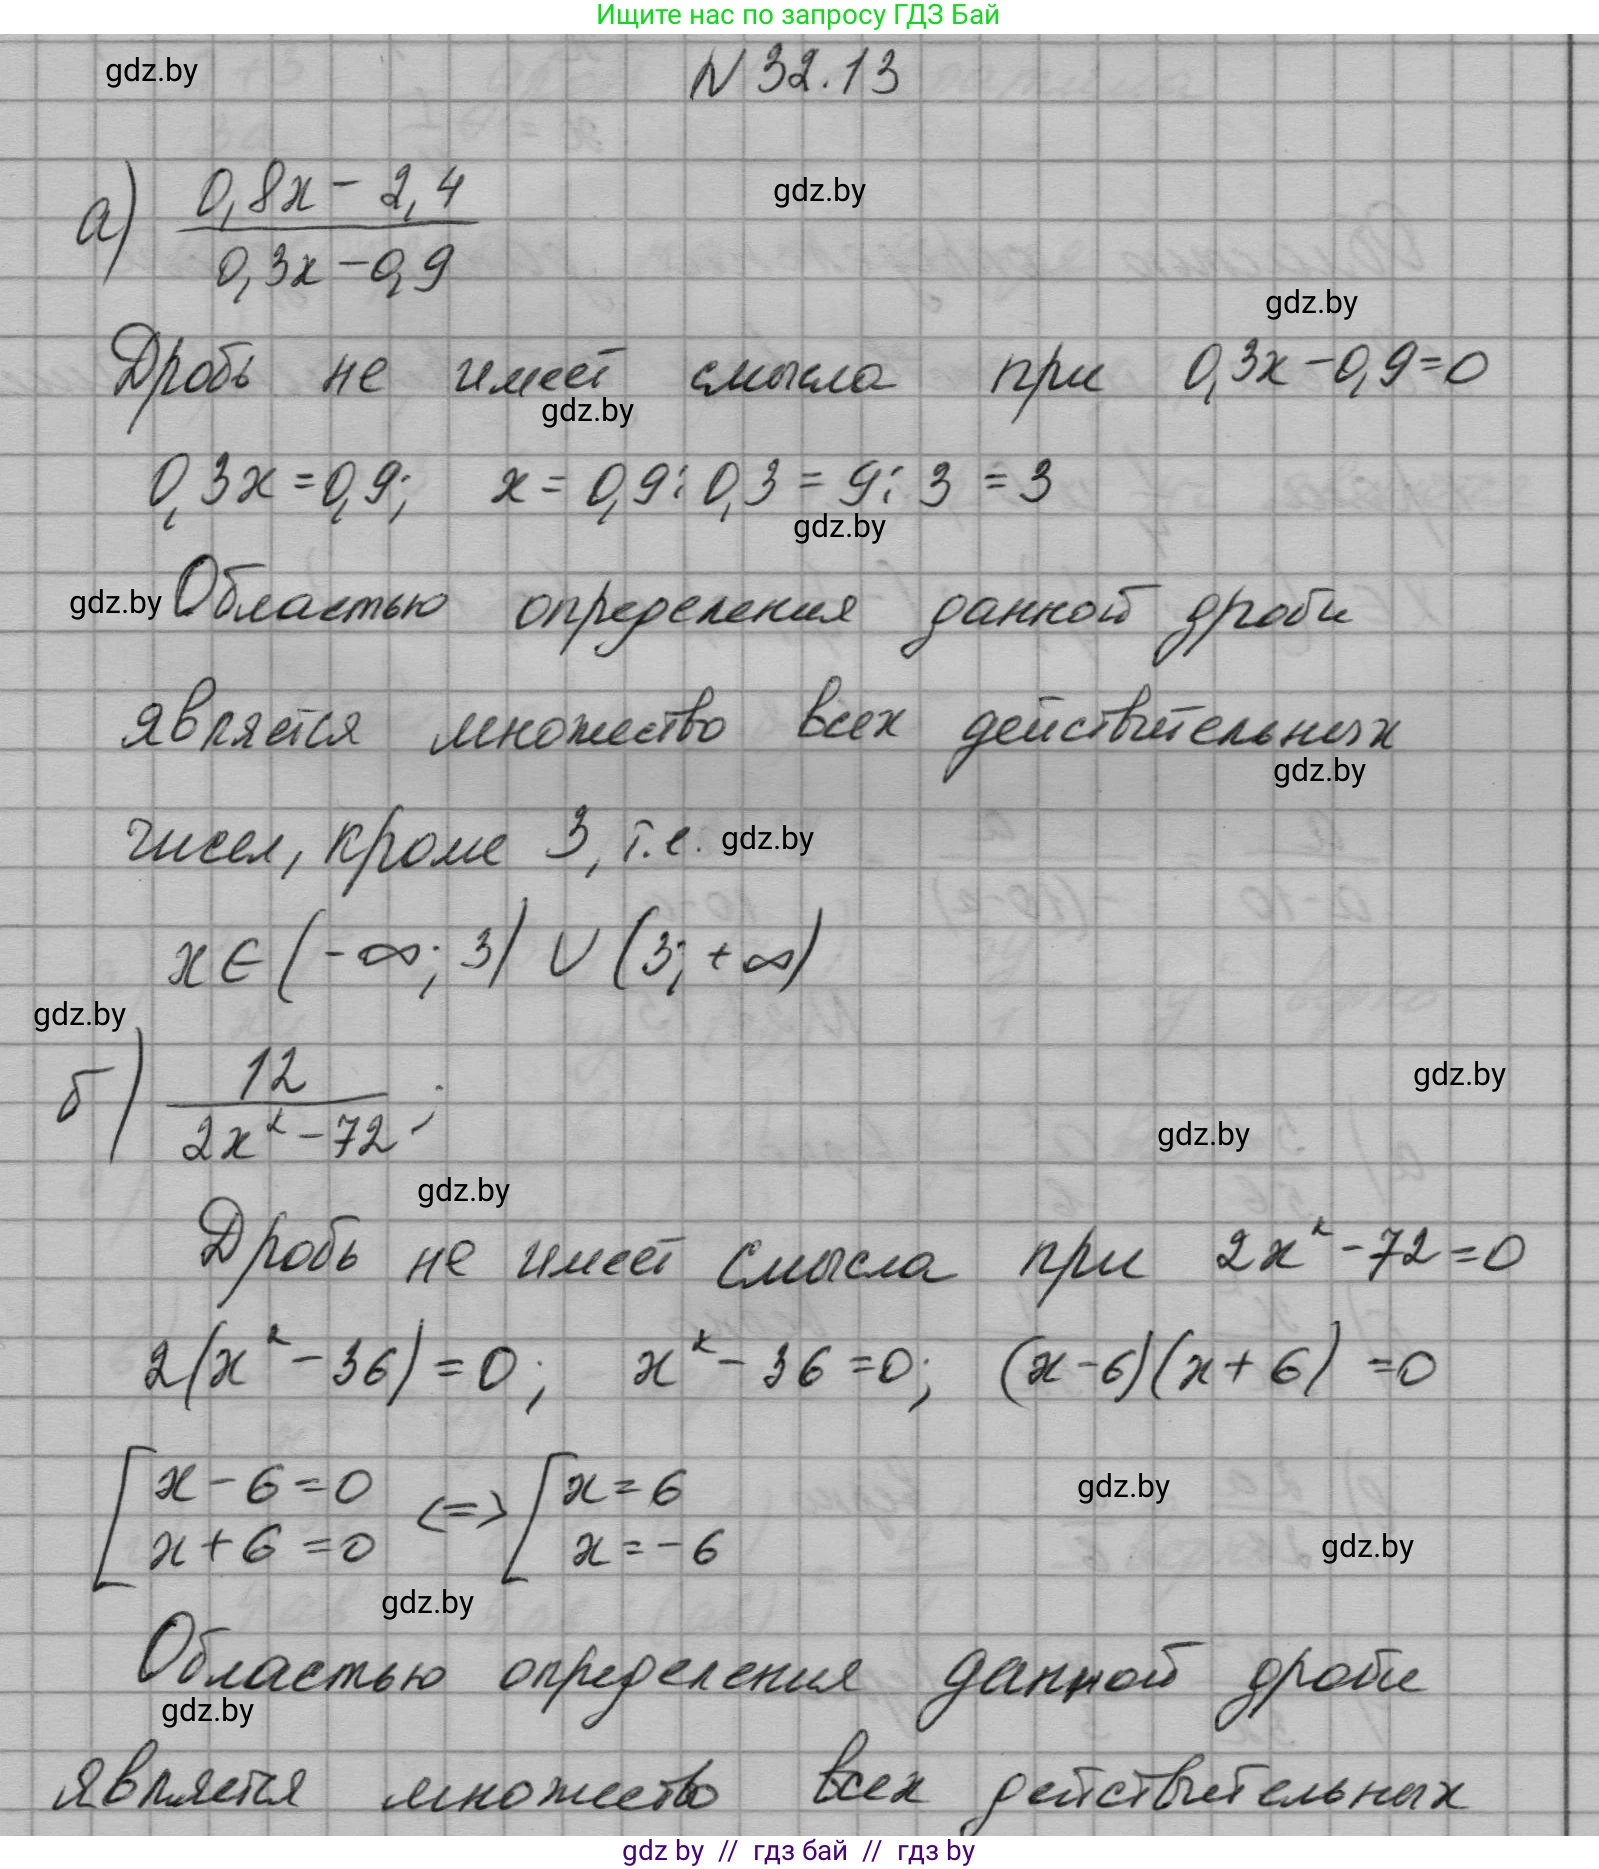 Ищите нас по запросу ГДЗ Бай
gdz.by
N 32.13
а) (0,8x - 2,4)/(0,3x - 0,9)
gdz.by
gdz.by
Дробь не имеет смысла при 0,3x - 0,9 = 0
gdz.by
0,3x = 0,9; x = 0,9 : 0,3 = 9 : 3 = 3
gdz.by
gdz.by
Областью определения данной дроби
является множество всех действительных
gdz.by
чисел, кроме 3, т.е.
gdz.by
x ∈ (-∞; 3) ∪ (3; +∞)
gdz.by
б) 12/(2x² - 72);
gdz.by
gdz.by
gdz.by
Дробь не имеет смысла при 2x² - 72 = 0
2(x² - 36) = 0; x² - 36 = 0; (x - 6)(x + 6) = 0
[x - 6 = 0 <=> [x = 6
gdz.by
x + 6 = 0 x = -6
gdz.by
gdz.by
Областью определения данной дроби
gdz.by
является множество всех действительных
gdz by // гдз бай // гдз by